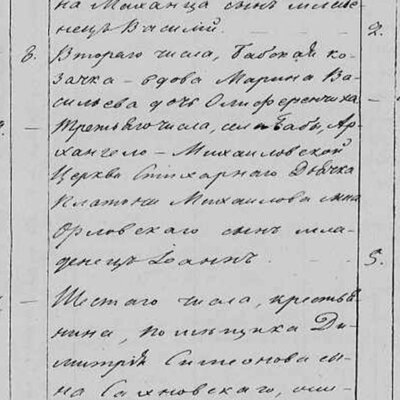 на Маханца сынъ младе-
нецъ Василій.
2.
8. Втораго числа, Бабской ко-
зачка – вдова Марина Ва-
сильева дочь Олиференчиха
Третьяго числа, села Бабы, Ар-
хангело – Михаиловской
Церкви Стихарнаго Дьячка
Платона Михаилова сына
Орловскаго сынъ мла-
денецъ Іоаннъ.
5.
Шестаго числа, крестья-
нина, помѣщика Ди-
митрія Симеонова сы-
на Сахновскаго,